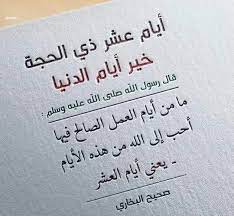 أيام عشر ذي الحجة
خير أيام الدنيا
قال رسول الله صلى الله عليه وسلم :
ما من أيام العمل الصالح فيها
أحب إلى الله من هذه الأيام
- يعني أيام العشر
صحيح البخاري